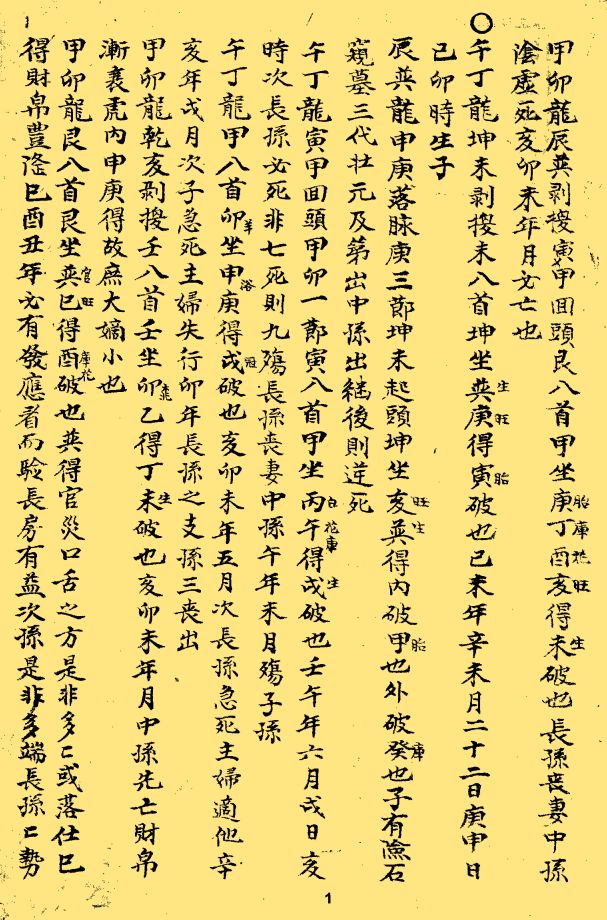 甲卯龍辰巽剥換寅甲回頭艮八首甲坐庚胎丁庫酉花亥旺得未生破也長孫喪妻中孫
陰虛死亥卯未年月必亡也
○午丁龍坤未剥換未八首坤坐巽生庚旺得寅胎破也己未年辛未月二十二日庚申日
己卯時生子
辰巽龍申庚落脉庚三節坤未起頭坤坐亥旺巽生得內破甲胎也外破癸庫也子有險石
窺墓三代壮元及第出中孫出継後則逆死
午丁龍寅甲回頭甲卯一節寅八首甲坐丙午得戌生破也壬午年六月戌日亥
時次長孫必死非七死則九殤長孫喪妻中孫午年未月殤子孫
午丁龍甲八首卯坐申庚浴得戌冠破也亥卯未年五月次長孫急死主婦適他辛
亥年戌月次子急死主婦失行卯年長孫之支孫三喪出
甲卯龍乾亥剥換壬八首壬坐卯乙得丁未生破也亥卯未年月中孫先亡財帛
漸衰虎內申庚得故庶大嫡小也
甲卯龍艮八首艮坐巽官巳旺得酉庫花破也巽得官災口舌之方是非多〻或落仕巳
得財帛豊隆巳酉丑年必有發應者而驗長房有益次孫是非多端長孫〻勢
1